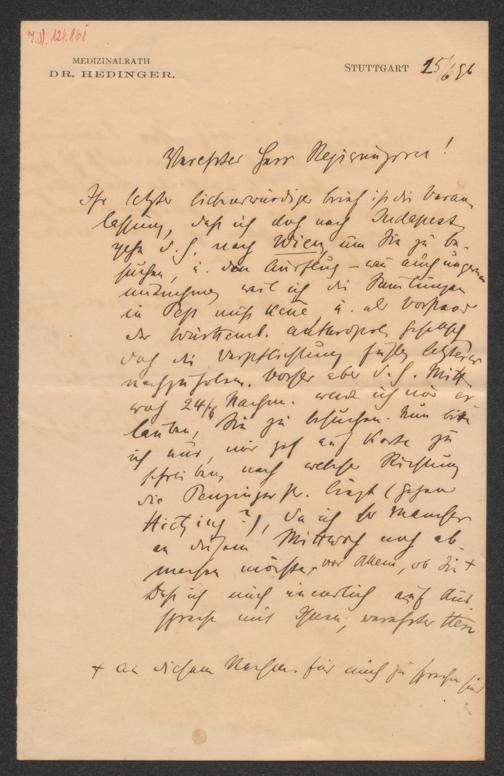 MEDIZINALRATH
DR. HEDINGER.
STUTTGART 15/6 96
Verehrter Herr Regierungsrat!
Ihr letzter liebenswürdiger Brief ist die Veran
lassung, daß ich doch nach Budapest
gehe d.h. nach Wien, um Sie zu be-
suchen, u. den Ausflug – wenn auch ungern
mitnehme, weil ich die Samlungen
in Pest nicht kenne u. als Vorstand
der Württemb. anthropol. Gesellsch
doch die Verpflichtung fühle, letztere
nachzuholen. Vorher aber d.h. Mitt
woch 24/6 Nachm. werde ich mir er
lauben, Sie zu besuchen. Nun bitte
ich nur, mir auf Karte zu
schreiben, nach welcher Richtung
die Penzinger Str. liegt (gegen
Hietzing?), da ich so manches
an diesem Mittwoch noch ab
machen möchte, vor Allem, ob Sie +
Daß ich mich unendlich auf Aus-
sprache mit Ihnen, verehrter Herr
+ an diesem Nachm. für mich zu sprechen sind